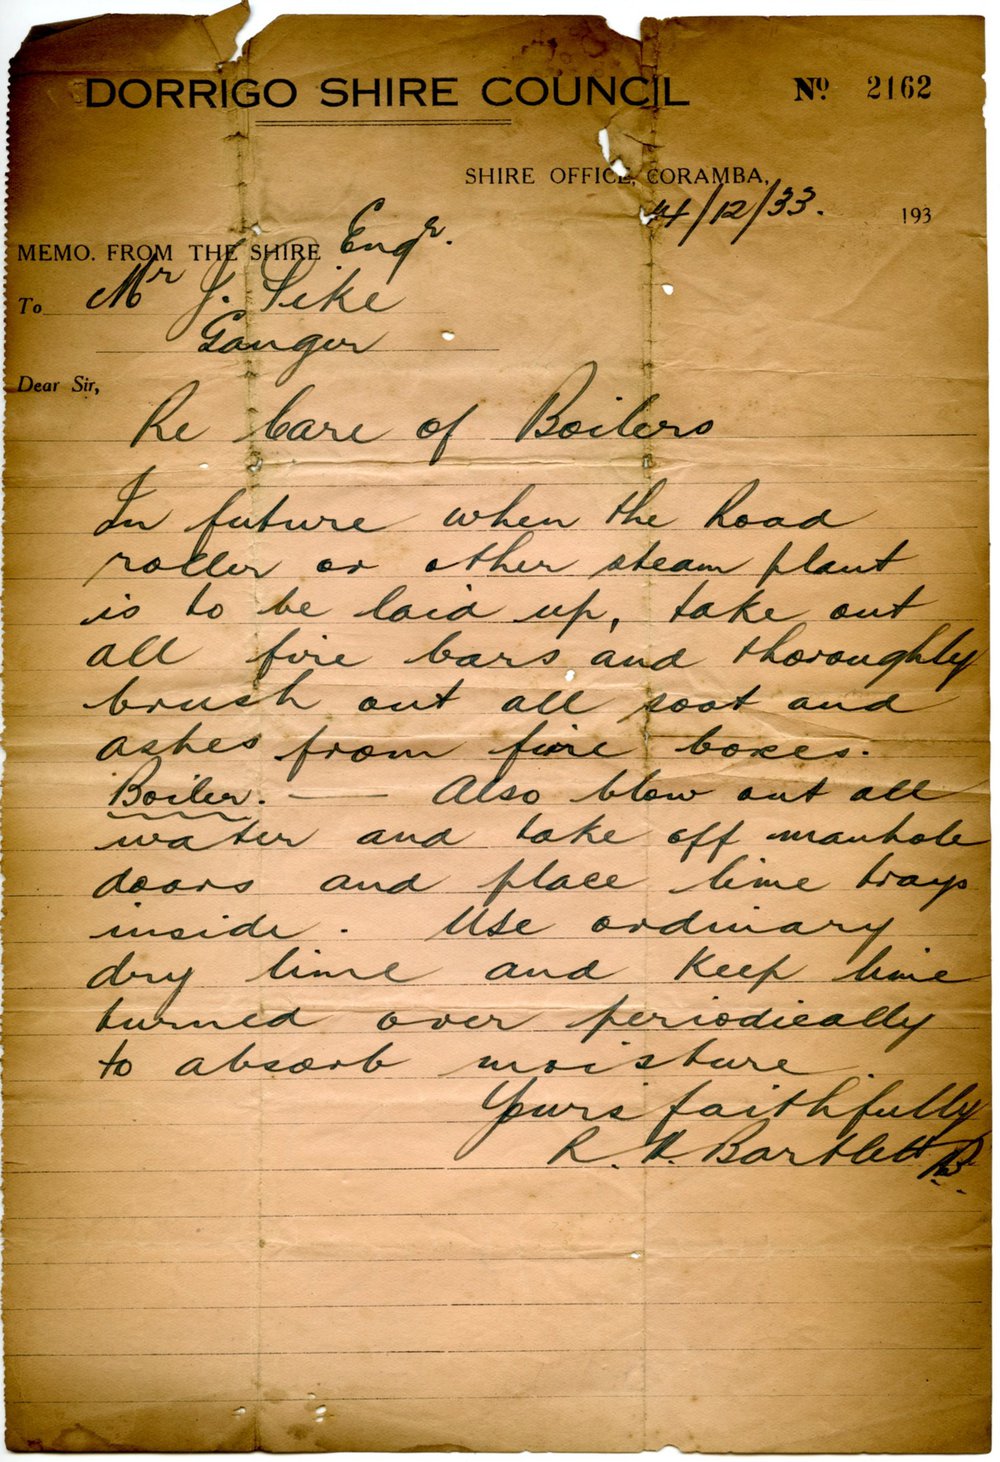 DORRIGO SHIRE COUNCIL Nº 2162
SHIRE OFFICE, CORAMBA,
4/12/33. 193
MEMO. FROM THE SHIRE Engr.
To Mr J. Pike
Ganger
Dear Sir,
Re Care of Boilers
In future when the Road
roller or other steam plant
is to be laid up, take out
all fire bars and thoroughly
brush out all soot and
ashes from fire boxes.
Boiler. — Also blow out all
water and take off manhole
doors and place lime trays
inside. Use ordinary
dry lime and keep lime
turned over periodically
to absorb moisture.
Yours faithfully
R. Bartlett